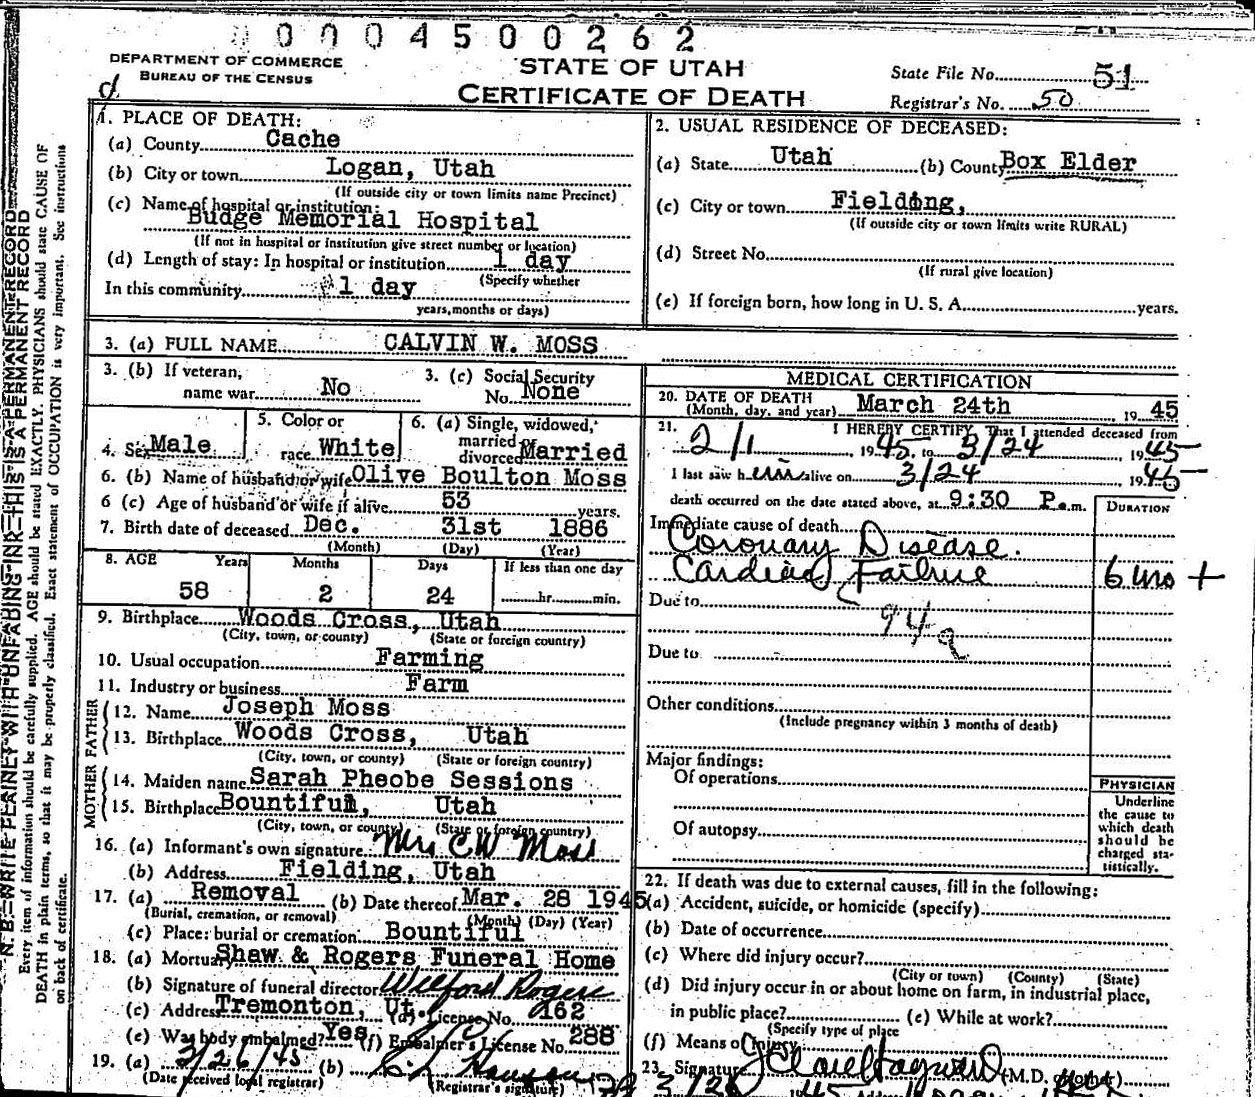 0 0 0 4 5 0 0 2 6 2
DEPARTMENT OF COMMERCE
BUREAU OF THE CENSUS
STATE OF UTAH
CERTIFICATE OF DEATH
State File No. 51
Registrar's No. 50
1. PLACE OF DEATH:
(a) County Cache
(b) City or town Logan, Utah
(If outside city or town limits name Precinct)
(c) Name of hospital or institution:
Budge Memorial Hospital
(If not in hospital or institution give street number or location)
(d) Length of stay: In hospital or institution 1 day
(Specify whether
In this community 1 day
years, months or days)
2. USUAL RESIDENCE OF DECEASED:
(a) State Utah (b) County Box Elder
(c) City or town Fielding,
(If outside city or town limits write RURAL)
(d) Street No.
(If rural give location)
(e) If foreign born, how long in U. S. A. years.
3. (a) FULL NAME CALVIN W. MOSS
3. (b) If veteran, name war No
3. (c) Social Security No. None
4. Sex Male
5. Color or race White
6. (a) Single, widowed, married divorced Married
6. (b) Name of husband or wife Olive Boulton Moss
6 (c) Age of husband or wife if alive 53 years.
7. Birth date of deceased Dec. 31st 1886
(Month) (Day) (Year)
8. AGE Years Months Days If less than one day
58 2 24 hr. min.
9. Birthplace Woods Cross, Utah
(City, town, or county) (State or foreign country)
10. Usual occupation Farming
11. Industry or business Farm
FATHER
12. Name Joseph Moss
13. Birthplace Woods Cross, Utah
(City, town, or county) (State or foreign country)
MOTHER
14. Maiden name Sarah Pheobe Sessions
15. Birthplace Bountiful, Utah
(City, town, or county) (State or foreign country)
16. (a) Informant's own signature Mrs C W Moss
(b) Address Fielding, Utah
17. (a) Removal (b) Date thereof Mar. 28 1945
(Burial, cremation, or removal) (Month) (Day) (Year)
(c) Place: burial or cremation Bountiful
18. (a) Mortuary Shaw & Rogers Funeral Home
(b) Signature of funeral director Wilford Rogers
(c) Address Tremonton, Ut. (d) License No. 162
(e) Was body embalmed? Yes (f) Embalmer's License No. 288
19. (a) 3/26/45 (b)
(Date received local registrar) (Registrar's signature)
MEDICAL CERTIFICATION
20. DATE OF DEATH
(Month, day, and year) March 24th, 1945
21. I HEREBY CERTIFY That I attended deceased from
2/1 1945, to 3/24 1945
I last saw him alive on 3/24 1945
death occurred on the date stated above, at 9:30 P.m.
DURATION
Immediate cause of death
Coronary Disease.
Cardiac Failure 6 mo +
Due to 94a
Due to
Other conditions
(Include pregnancy within 3 months of death)
Major findings:
Of operations
Of autopsy
PHYSICIAN
Underline
the cause to
which death
should be
charged sta-
tistically.
22. If death was due to external causes, fill in the following:
(a) Accident, suicide, or homicide (specify)
(b) Date of occurrence
(c) Where did injury occur?
(City or town) (County) (State)
(d) Did injury occur in or about home on farm, in industrial place,
in public place? (e) While at work?
(Specify type of place
(f) Means of Injury
23. Signature J Clare Hayward (M.D. or other)
N. B.—WRITE PLAINLY WITH UNFADING INK—THIS IS A PERMANENT RECORD
Every item of information should be carefully supplied. AGE should be stated EXACTLY. PHYSICIANS should state CAUSE OF
DEATH in plain terms, so that it may be properly classified. Exact statement of OCCUPATION is very important. See instructions
on back of certificate.